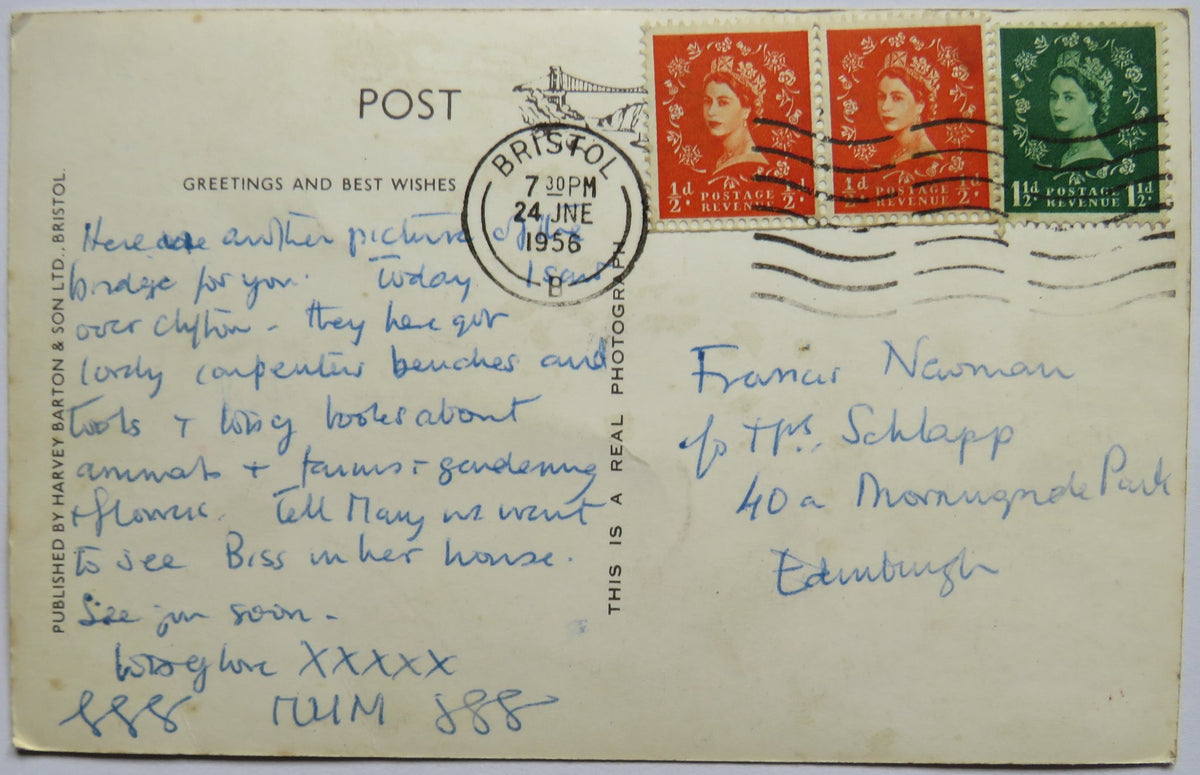 POST
GREETINGS AND BEST WISHES
BRISTOL
7 30 PM
24 JNE
1956
B
½d POSTAGE ½.
2. REVENUE
½d POSTAGE ½
2. REVENUE 2.
1½d POSTAGE 1½d
REVENUE
PUBLISHED BY HARVEY BARTON & SON LTD., BRISTOL.
THIS IS A REAL PHOTOGRAPH
Here are another picture of the
bridge for you. Today I
over Clifton - they have got
lovely carpenters benches and
tools + lots of books about
animals + farms + gardening
+ flowers. Tell Mary we went
to see Biss in her house.
See you soon -
lots of love XXXXX
MUM
Francis Newman
c/o Mrs. Schlapp
40a Morningside Park
Edinburgh